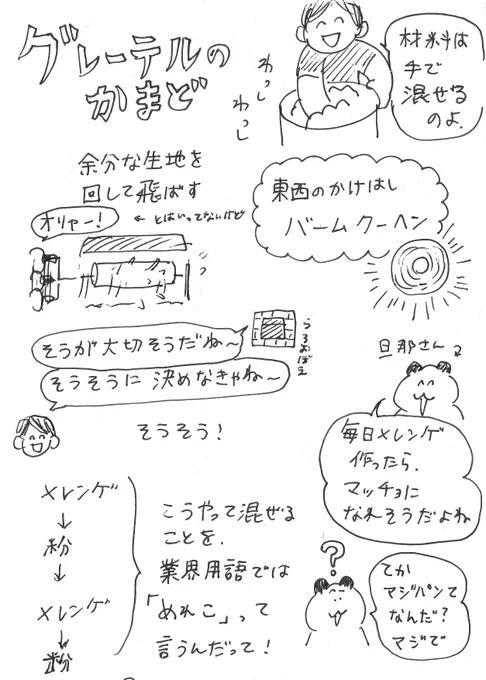 グレーテルの
かまど
わっし
わっし
材料は
手で
混ぜる
のよ.
余分な生地を
回して飛ばす
オリャー!
← とはいってないけど
東西のかけはし
バームクーヘン
そうが大切そうだね〜
そうそうに決めなきゃね〜
うろおぼえ
そうそう!
旦那さん
毎日メレンゲ
作ったら.
マッチョに
なれそうだよね
メレンゲ
↓
粉
↓
メレンゲ
↓
粉
こうやって混ぜる
ことを.
業界用語では
「めれこ」って
言うんだって!
?
てか
マジパンて
なんだ?
マジで